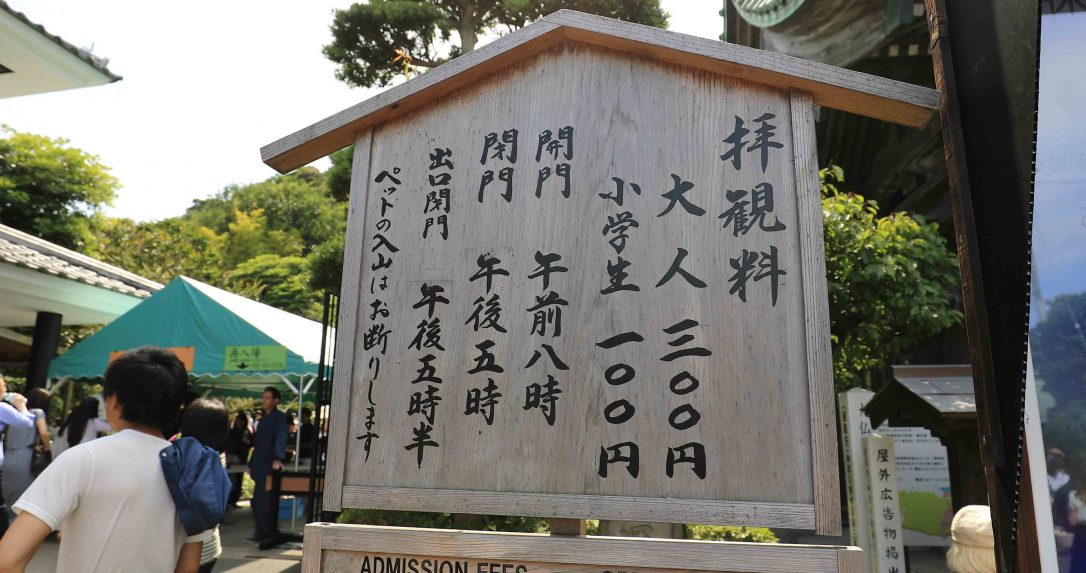 拝観料
大人 三〇〇円
小学生 一〇〇円
開門 午前八時
閉門 午後五時
出口閉門 午後五時半
ペットの入山はお断りします
ADMISSION FEES
再入場
屋外広告物掲出